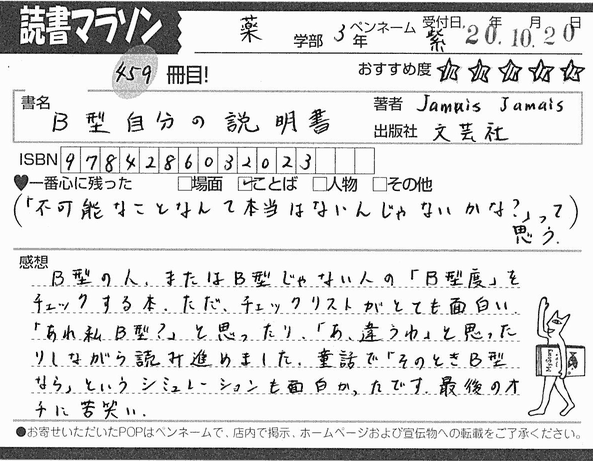 読書マラソン
薬 学部 3年 ペンネーム 紫 受付日 20年10月20日
459 冊目!
おすすめ度 ☆☆☆☆☆
書名 B型自分の説明書
著者 Jamais Jamais
出版社 文芸社
ISBN 9784286032023
♥一番心に残った □場面 ☑ことば □人物 □その他
(「不可能なことなんて本当はないんじゃないかな?」って
思う.)
感想
B型の人、またはB型じゃない人の「B型度」を
チェックする本。ただ、チェックリストがとても面白い.
「あれ私B型?」と思ったり、「あ、違うわ」と思った
りしながら読み進めました. 童話で「そのときB型
なら」というシミュレーションも面白かったです. 最後のオ
チに苦笑い.
●お寄せいただいたPOPはペンネームで、店内で掲示、ホームページおよび宣伝物への転載をご了承ください。